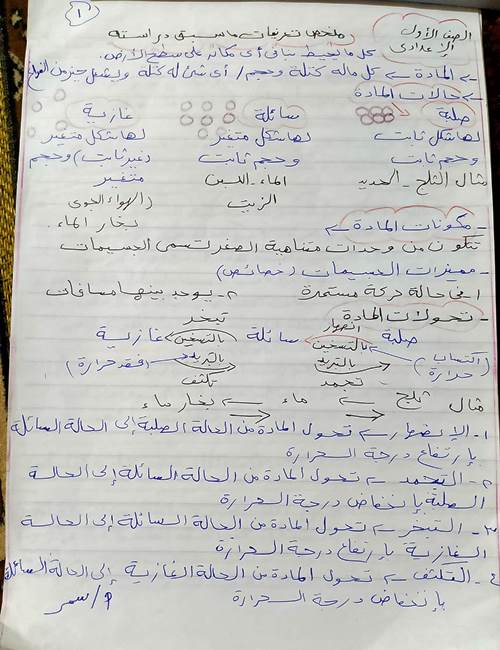 ١
الصف الأول
الإعدادى
ملخص تعريفات ماسبق دراسته
كل ما يحيط بنا فى أى مكان على سطح الأرض.
← المادة ← كل ماله كتلة وحجم / أى شئ له كتلة ويشغل حيز من الفراغ
← حالات المادة
صلبة سائلة غازية
لها شكل ثابت لها شكل متغير لها شكل متغير
وحجم ثابت وحجم ثابت (غير ثابت) وحجم
مثال الثلج - الحديد الماء - اللبن متغير
الزيت (الهواء الجوى
بخار الماء.
- مكونات المادة ←
تتكون من وحدات متناهية الصغر تسمى الجسيمات
- مميزات الجسيمات (خصائص)
١- فى حالة حركة مستمرة ٢- يوجد بينها مسافات
- تحولات المادة
انصهار تبخر
صلبة بالتسخين سائلة بالتسخين غازية
(اكتساب حرارة) بالتبريد بالتبريد (فقد حرارة)
تجمد تكثف
مثال ثلج ← ماء ← بخار ماء
١- الإنصهار ← تحول المادة من الحالة الصلبة إلى الحالة السائلة
بإرتفاع درجة الحرارة
٢- التجمد ← تحول المادة من الحالة السائلة إلى الحالة
الصلبة بإنخفاض درجة الحرارة
٣- التبخر ← تحول المادة من الحالة السائلة إلى الحالة
الغازية بإرتفاع درجة الحرارة
٤- التكثف ← تحول المادة من الحالة الغازية إلى الحالة السائلة
بإنخفاض درجة الحرارة
م/سمر